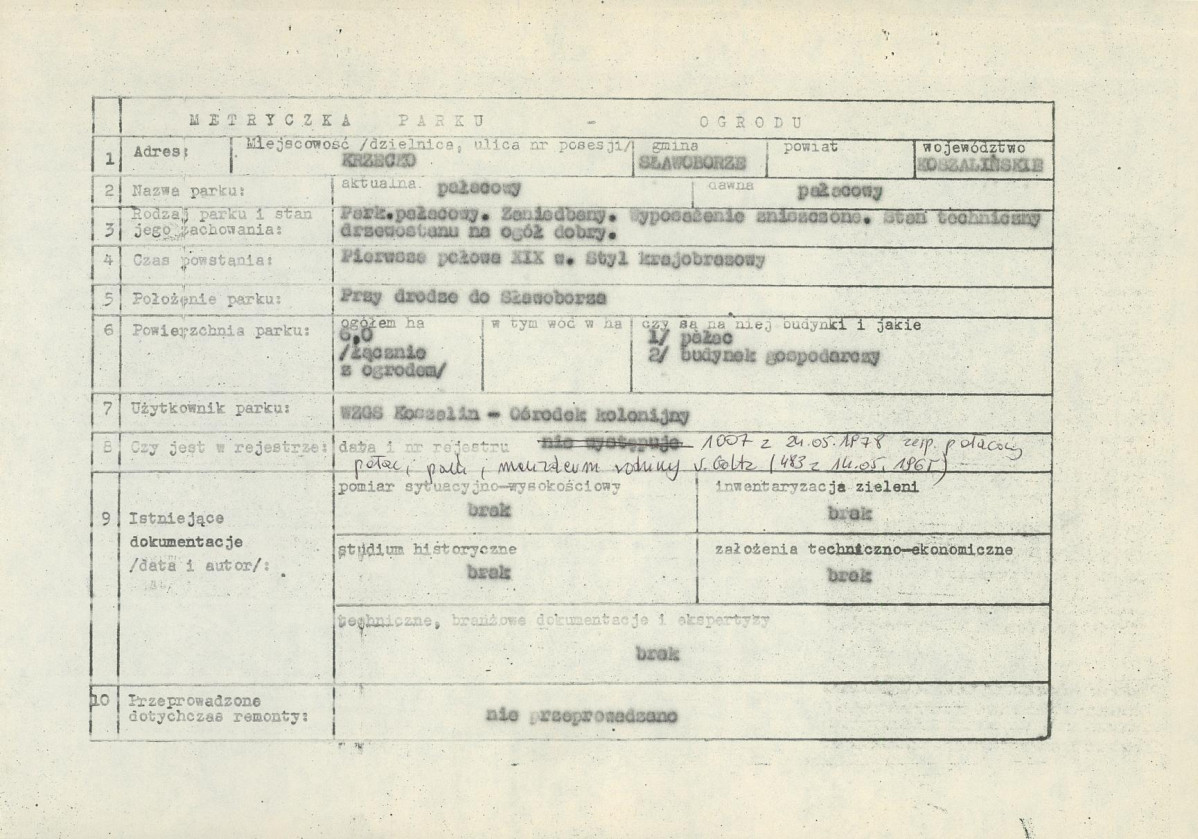 METRYCZKA PARKU - OGRODU
1 Adres: Miejscowość /dzielnica, ulica nr posesji/ gmina powiat województwo
KRZECKO SŁAWOBORZE KOSZALIŃSKIE
2 Nazwa parku: aktualna pałacowy dawna pałacowy
3 Rodzaj parku i stan jego zachowania: Park.pałacowy. Zaniedbany. Wyposażenie zniszczone. Stan techniczny
drzewostanu na ogół dobry.
4 Czas powstania: Pierwsza połowa XIX w. Styl krajobrazowy
5 Położenie parku: Przy drodze do Sławoborza
6 Powierzchnia parku: ogółem ha w tym wód w ha czy są na niej budynki i jakie
6,0 1/ pałac
/łącznie 2/ budynek gospodarczy
z ogrodem/
7 Użytkownik parku: WZGS Koszalin - Ośrodek kolonijny
8 Czy jest w rejestrze: data i nr rejestru nie występuje 1007 z 24.05.1978 zesp. pałacowy
pałac, park, mauzoleum rodziny v. Goltz (483 z 14.05.1965)
pomiar sytuacyjno-wysokościowy inwentaryzacja zieleni
brak brak
9 Istniejące
dokumentacje
/data i autor/:
studium historyczne założenia techniczno-ekonomiczne
brak brak
techniczne, branżowe dokumentacje i ekspertyzy
brak
10 Przeprowadzone
dotychczas remonty: nie przeprowadzano